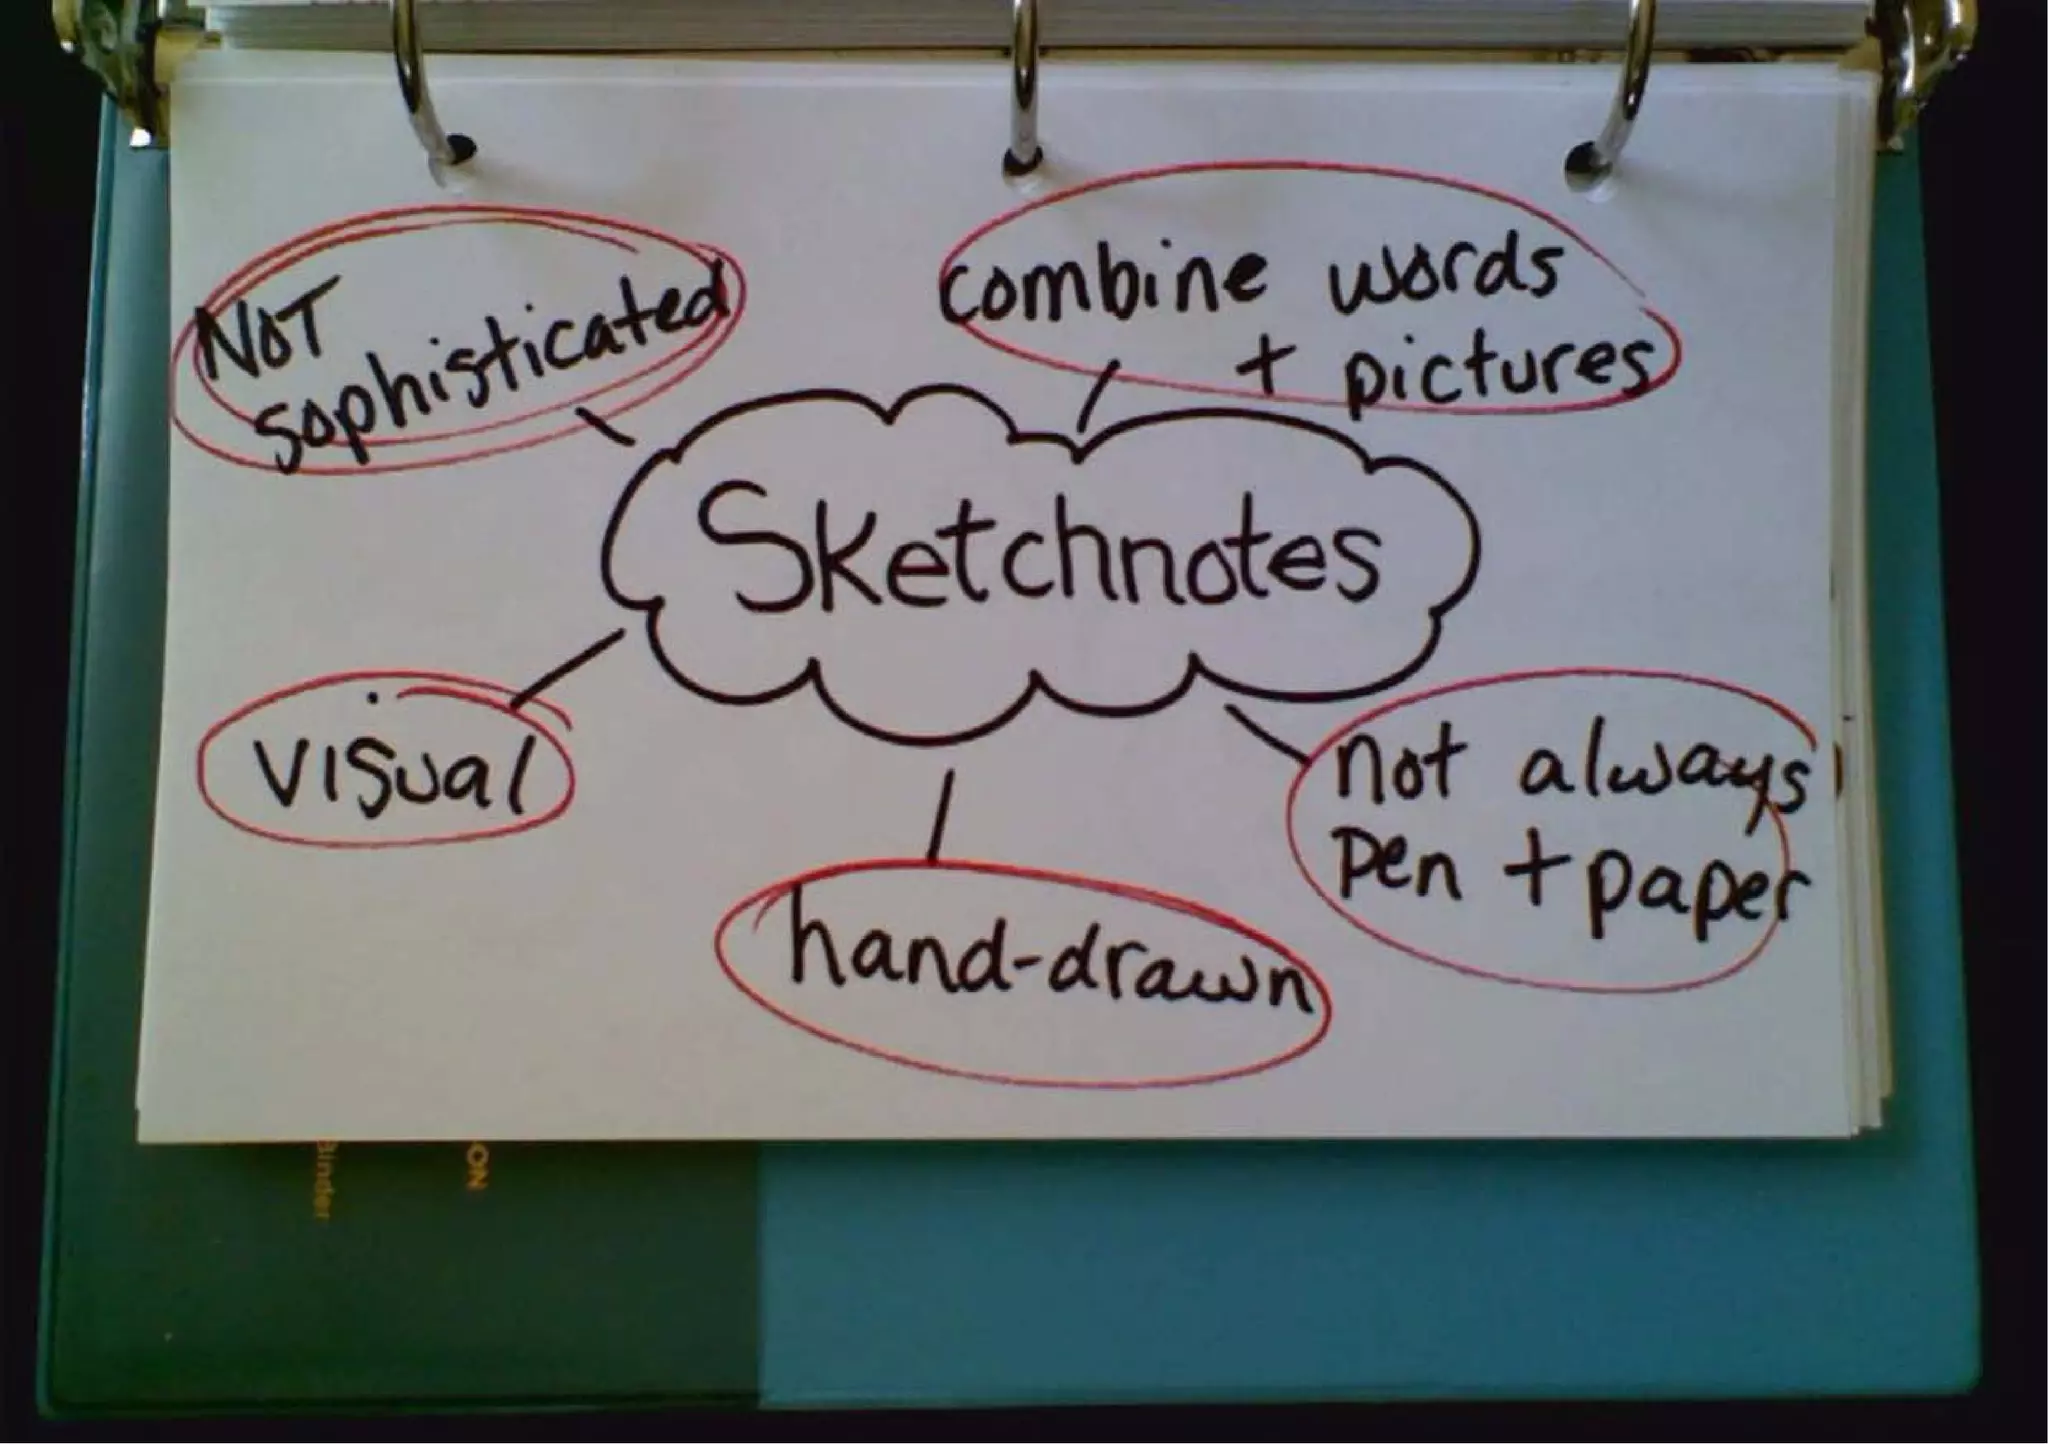 NOT
sophisticated
combine words
+ pictures
Sketchnotes
visual
not always
pen + paper
hand-drawn
ON
Binder